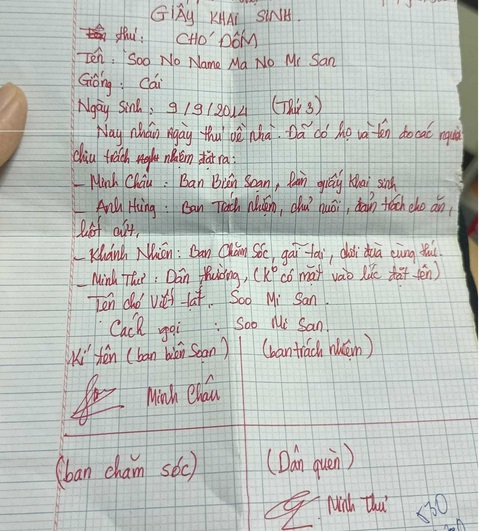 GIẤY KHAI SINH.
thú: CHÓ ĐỐM
Tên: Soo No Name Ma No Mi San
Giống: Cái
Ngày Sinh: 9/9/2014 (Thứ 3)
Nay nhân ngày thú về nhà. Đã có họ và tên do các người
chịu trách nhiệm đặt ra:
- Minh Châu: Ban Biên Soạn, làm giấy khai sinh
- Anh Hùng: Ban Trách nhiệm, chủ nuôi, đảm trách cho ăn,
hốt cứt,
- Khánh Nhiên: Ban Chăm Sóc, gãi tai, chơi đùa cùng thú.
- Minh Thư: Dân thường, (Ko có mặt vào lúc đặt tên)
Tên chó viết tắt: Soo Mi San.
Cách gọi: Soo Mi San.
Kí tên (ban biên soạn) (ban trách nhiệm)
Minh Châu
(ban chăm sóc) (Dân quèn)
Minh Thư